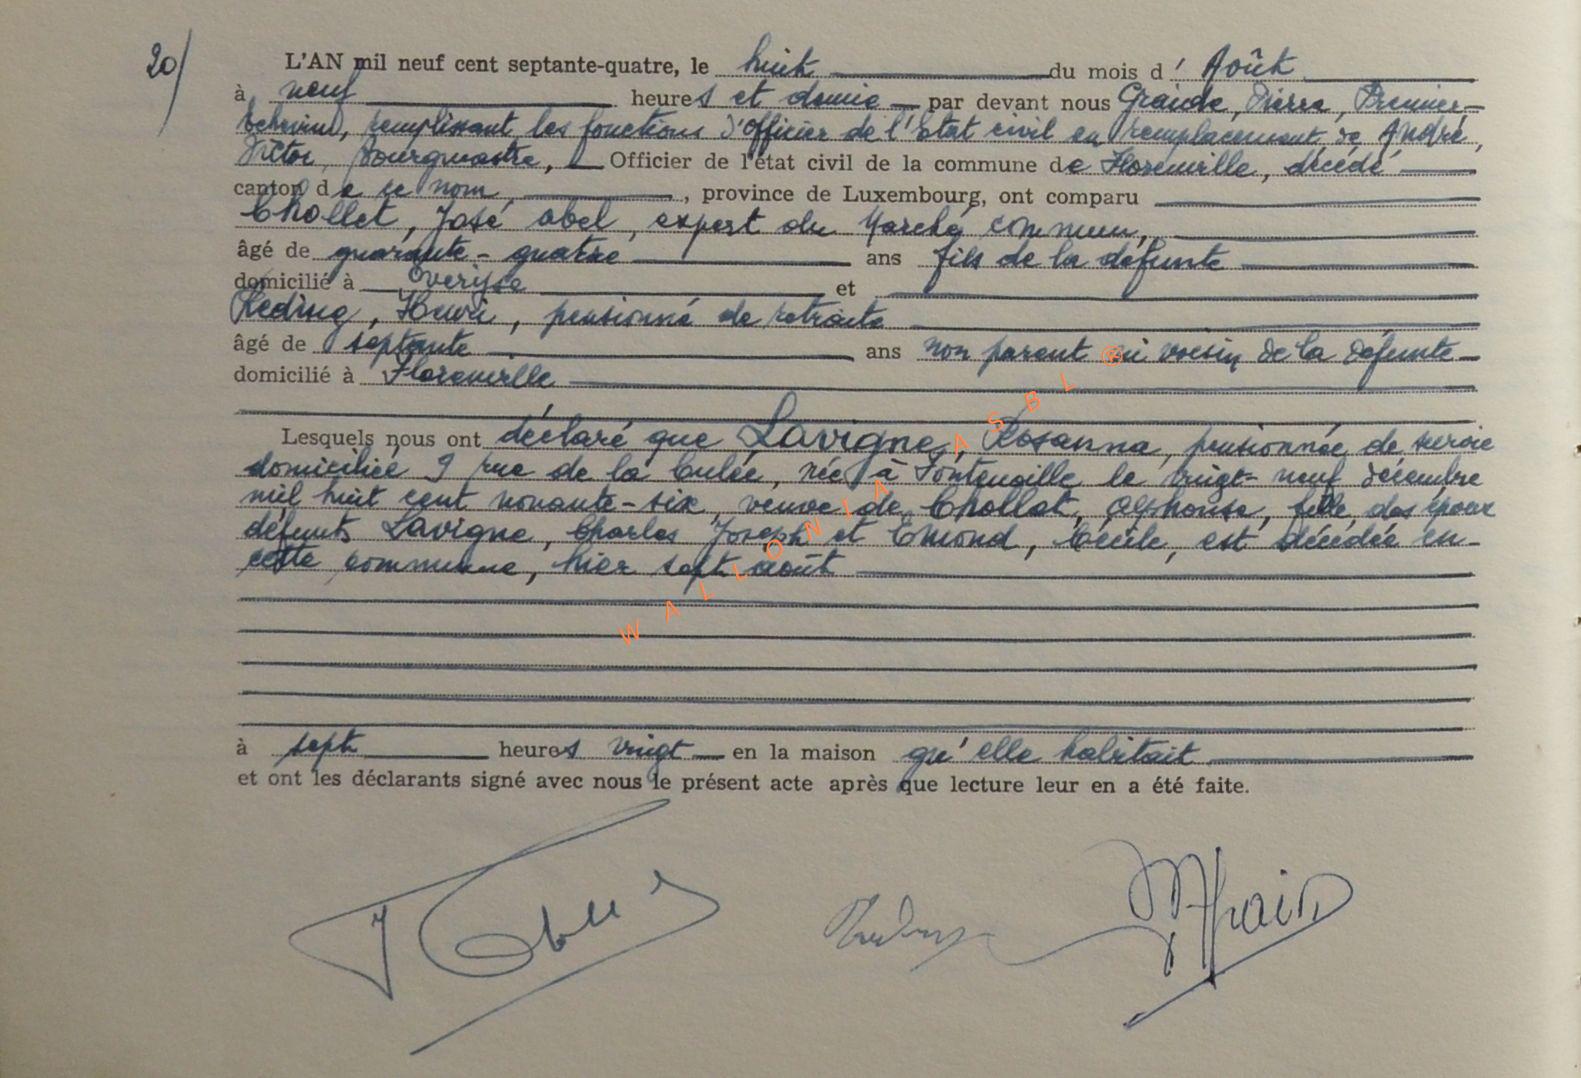 20/
L'AN mil neuf cent septante-quatre, le huit du mois d' Août
à neuf heures et demie par devant nous Pierre, Premier-
Echevin, remplissant les fonctions d'Officier de l'Etat civil en remplacement de André,
Victor, Bourgmestre, Officier de l'état civil de la commune de Florenville, décédé
canton de ce nom, , province de Luxembourg, ont comparu
Chollet, José Abel, expert du Marché commun,
âgé de quarante-quatre ans fils de la défunte
domicilié à Overijse et
Reding, Henri, pensionné de retraite
âgé de septante ans non parent ni voisin de la défunte
domicilié à Florenville
Lesquels nous ont déclaré que Lavigne, Rosanna, pensionnée de survie
domiciliée 9 rue de la Culée, née à Fontenoille le vingt-neuf décembre
mil huit cent nonante-six, veuve de Chollet, Alphonse, fille des époux
défunts Lavigne, Charles Joseph et Emond, Cécile, est décédée en
cette commune, hier sept août
à sept heures vingt en la maison qu'elle habitait
et ont les déclarants signé avec nous le présent acte après que lecture leur en a été faite.
WALLONIA ASBL ©